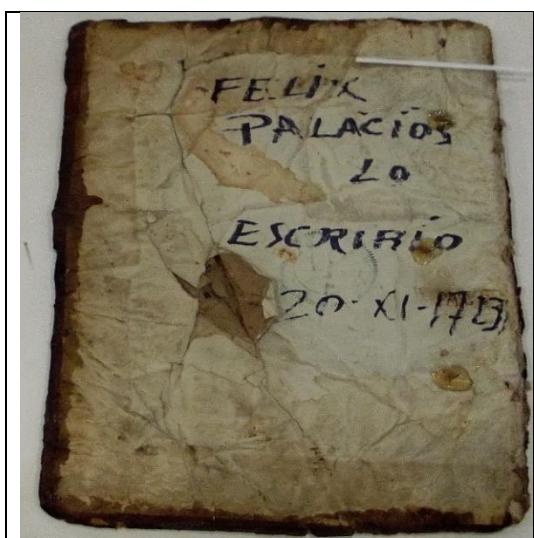 FELIX
PALACIOS
LO
ESCRIBIO
20-XI-